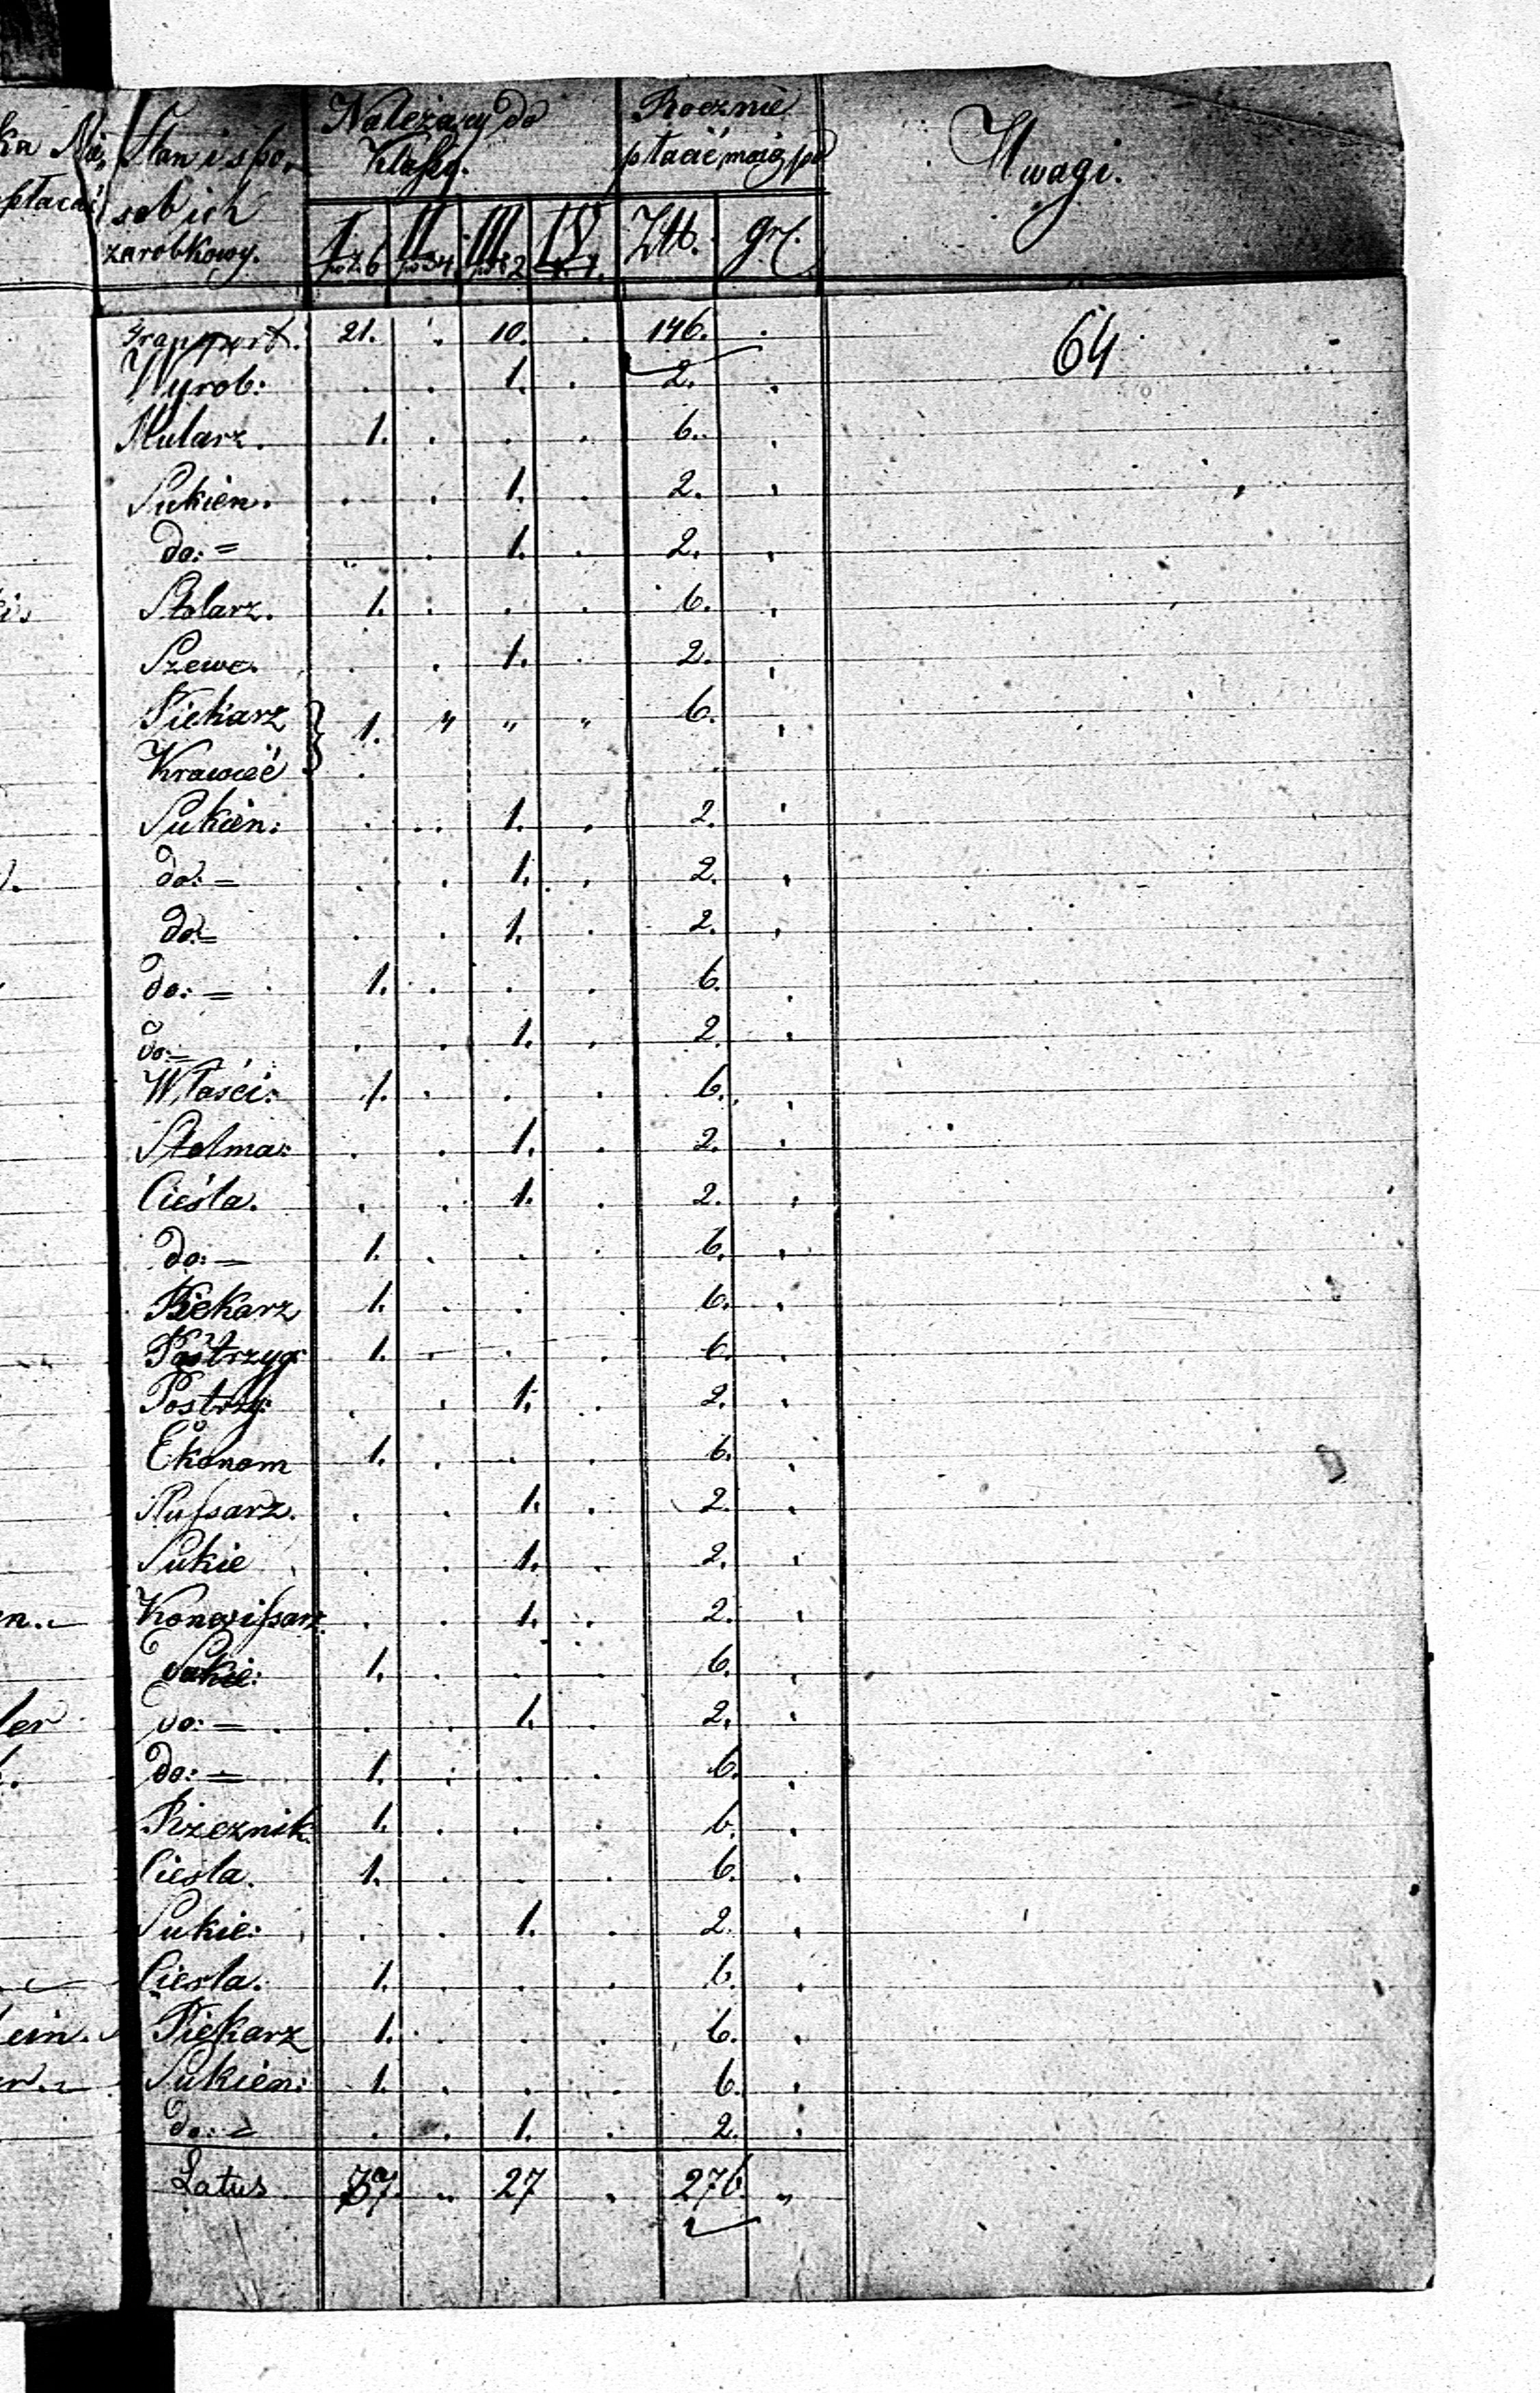 Należący do
Klassy.
Rocznie
płacić mają po
Uwagi.
Stan i spo-
sob ich
zarobkowy.
I II III IV Złtt. gr.
po z. 6 po z 4. po z 2
64
Transport. 21. . 10. . 146. .
Wyrob: . . 1. . 2. .
Mularz. 1. . . . 6. .
Sukien. . . 1. . 2. .
do: = . . 1. . 2. .
Stolarz. 1. . . . 6. .
Szewc. . . 1. . 2. .
Piekarz } 1. " " " 6. .
Krawieć
Sukien: . . 1. . 2. .
do: = . . 1. . 2. .
do: = . . 1. . 2. .
do: = 1. . . . 6. .
do: = . . 1. . 2. .
Właści: 1. . . . 6. .
Stelma: . . 1. . 2. .
Cieśla. . . 1. . 2. .
do: = 1. . . . 6. .
Piekarz 1. . . . 6. .
Postrzyg: 1. . . . 6. .
Postrzy: . . 1. . 2. .
Ekonom 1. . . . 6. .
. . 1. . 2. .
Sukie . . 1. . 2. .
. . 1. . 2. .
Sukie: 1. . . . 6. .
do: = . . 1. . 2. .
do: = 1. . . . 6. .
Rzeznik 1. . . . 6. .
Ciesla. 1. . . . 6. .
Sukie: . . 1. . 2. .
Ciesla. 1. . . . 6. .
Piekarz 1. . . . 6. .
Sukien: 1. . . . 6. .
do: = . . 1. . 2. .
Latus 37 " 27 . 276. "